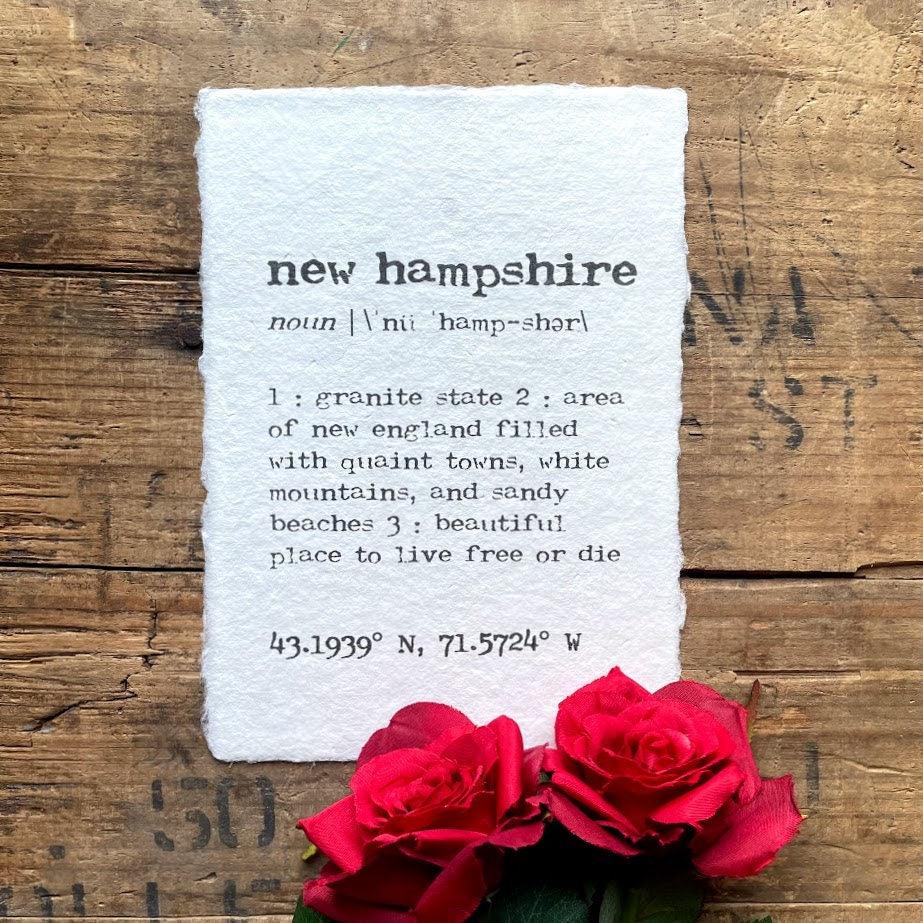 new hampshire
noun | \ˈnü ˈhamp-shər\
1 : granite state 2 : area
of new england filled
with quaint towns, white
mountains, and sandy
beaches 3 : beautiful
place to live free or die
43.1939° N, 71.5724° W
ST
50